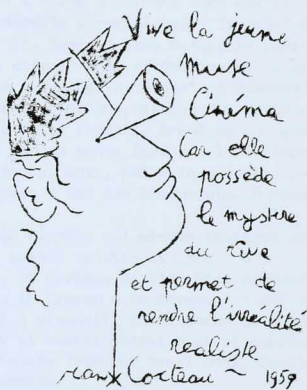 Vive la jeune
Muse
Cinéma
Car elle
possède
le mystère
du rêve
et permet de
rendre l'irréalité
realiste
Jean Cocteau ~ 1959